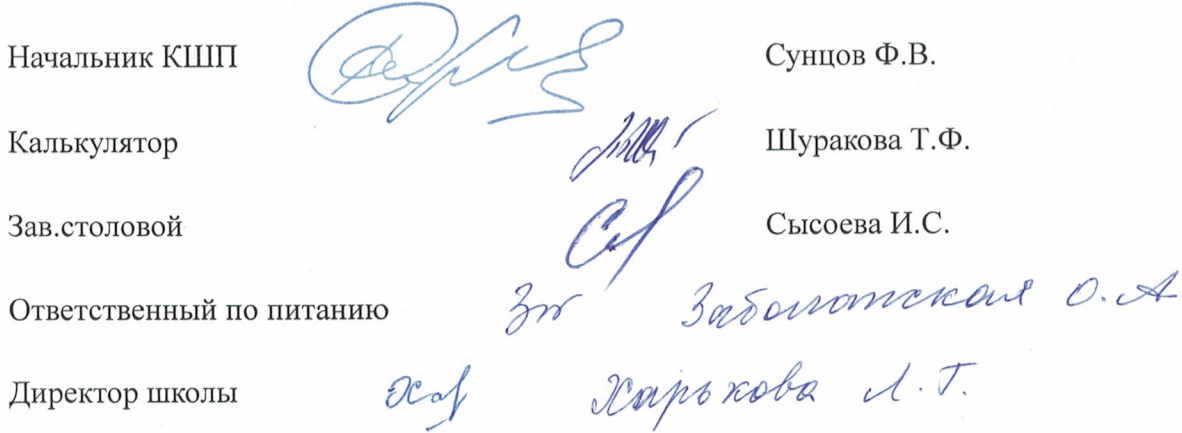 Начальник КШП Сунцов Ф.В.
Калькулятор Шуракова Т.Ф.
Зав.столовой Сысоева И.С.
Ответственный по питанию О.А
Директор школы Харькова Л.Г.